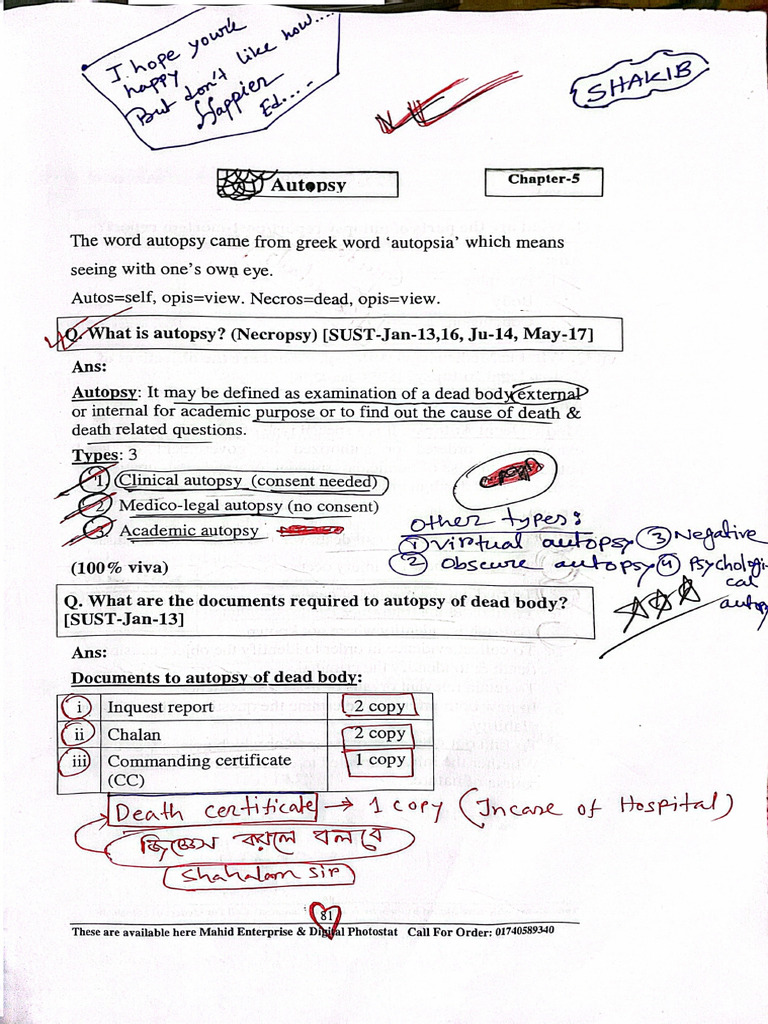 I hope you're
happy
But don't like how....
Happier
Ed....
SHAKIB
Autopsy
Chapter-5
The word autopsy came from greek word ‘autopsia’ which means
seeing with one’s own eye.
Autos=self, opis=view. Necros=dead, opis=view.
Q. What is autopsy? (Necropsy) [SUST-Jan-13,16, Ju-14, May-17]
Ans:
Autopsy: It may be defined as examination of a dead body external
or internal for academic purpose or to find out the cause of death &
death related questions.
Types: 3
1) Clinical autopsy (consent needed)
2) Medico-legal autopsy (no consent)
3. Academic autopsy
Other types:
① Virtual autopsy ③ Negative
② Obscure autopsy ④ Psychologi-
cal
autopsy
(100% viva)
Q. What are the documents required to autopsy of dead body?
[SUST-Jan-13]
Ans:
Documents to autopsy of dead body:
i Inquest report 2 copy
ii Chalan 2 copy
iii Commanding certificate 1 copy
(CC)
Death certificate → 1 copy (Incase of Hospital)
জিজ্ঞেস করলে বলবে
Shahalam sir
81
These are available here Mahid Enterprise & Digital Photostat Call For Order: 01740589340